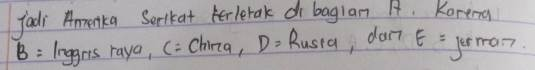 jadi Amerika Serikat terletak di bagian A. Karena
B = Inggris raya, C = China, D = Rusia, dan E = jerman.